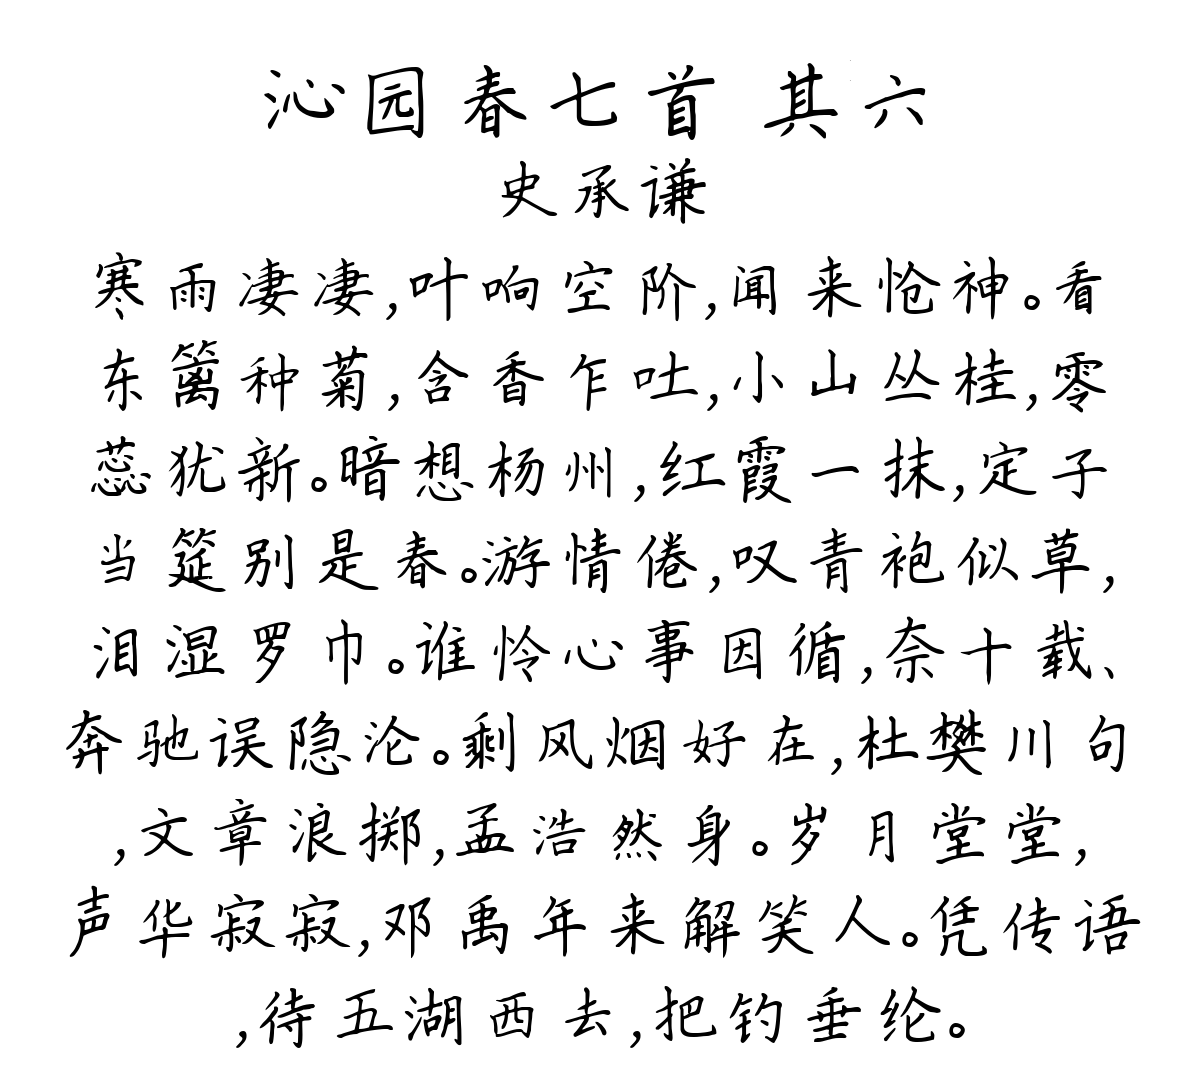 沁园春七首 其六
史承谦
寒雨凄凄,叶响空阶,闻来怆神。看
东篱种菊,含香乍吐,小山丛桂,零
蕊犹新。暗想杨州,红霞一抹,定子
当筵别是春。游情倦,叹青袍似草,
泪湿罗巾。谁怜心事因循,奈十载、
奔驰误隐沦。剩风烟好在,杜樊川句
,文章浪掷,孟浩然身。岁月堂堂,
声华寂寂,邓禹年来解笑人。凭传语
,待五湖西去,把钓垂纶。